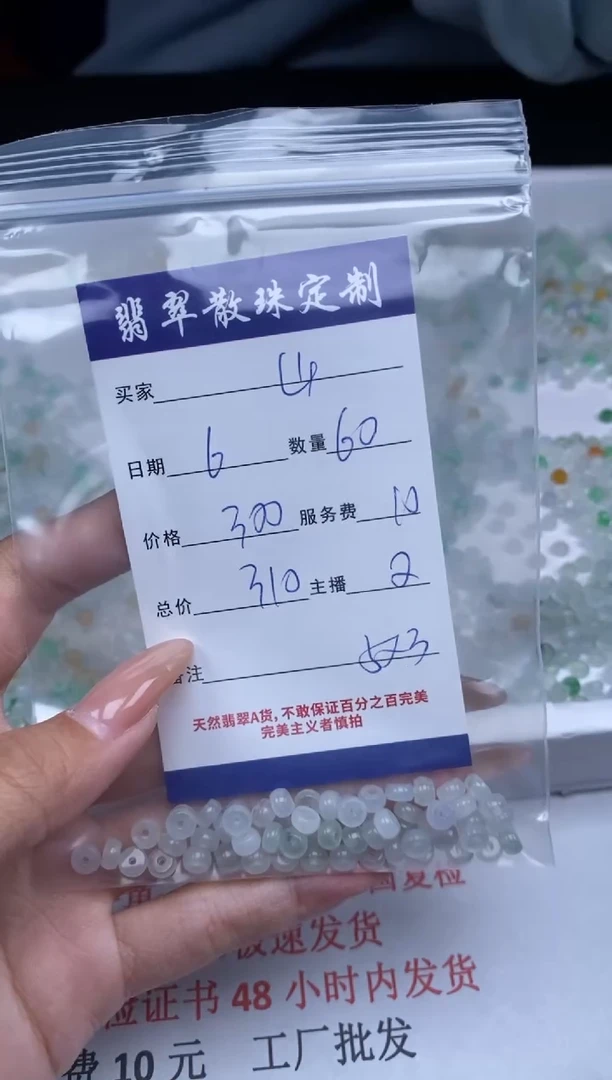 翡翠散珠定制
买家 4
日期 6 数量 60
价格 300 服务费 10
总价 310 主播 2
备注
天然翡翠A货，不敢保证百分之百完美
完美主义者慎拍
复检
极速发货
证书 48 小时内发货
费 10 元 工厂批发